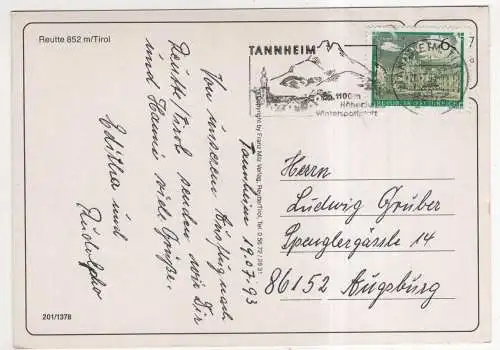 Reutte 852 m/Tirol
Tannheim 19.07.93
Von unserem Ausflug nach
Reutte/Tirol senden wir Dir
und Hanni viele Grüße.
Editha und
Rudolpho
201/1378
Copyright by Franz Milz Verlag, Reutte/Tirol, Tel. 0 56 72 / 26 31
TANNHEIM
1100m
Höhenluft
Wintersportplatz
TANNHEIM
6
REPUBLIK ÖSTERREICH
Herrn
Ludwig Gruber
Spenglergässle 14
86152 Augsburg